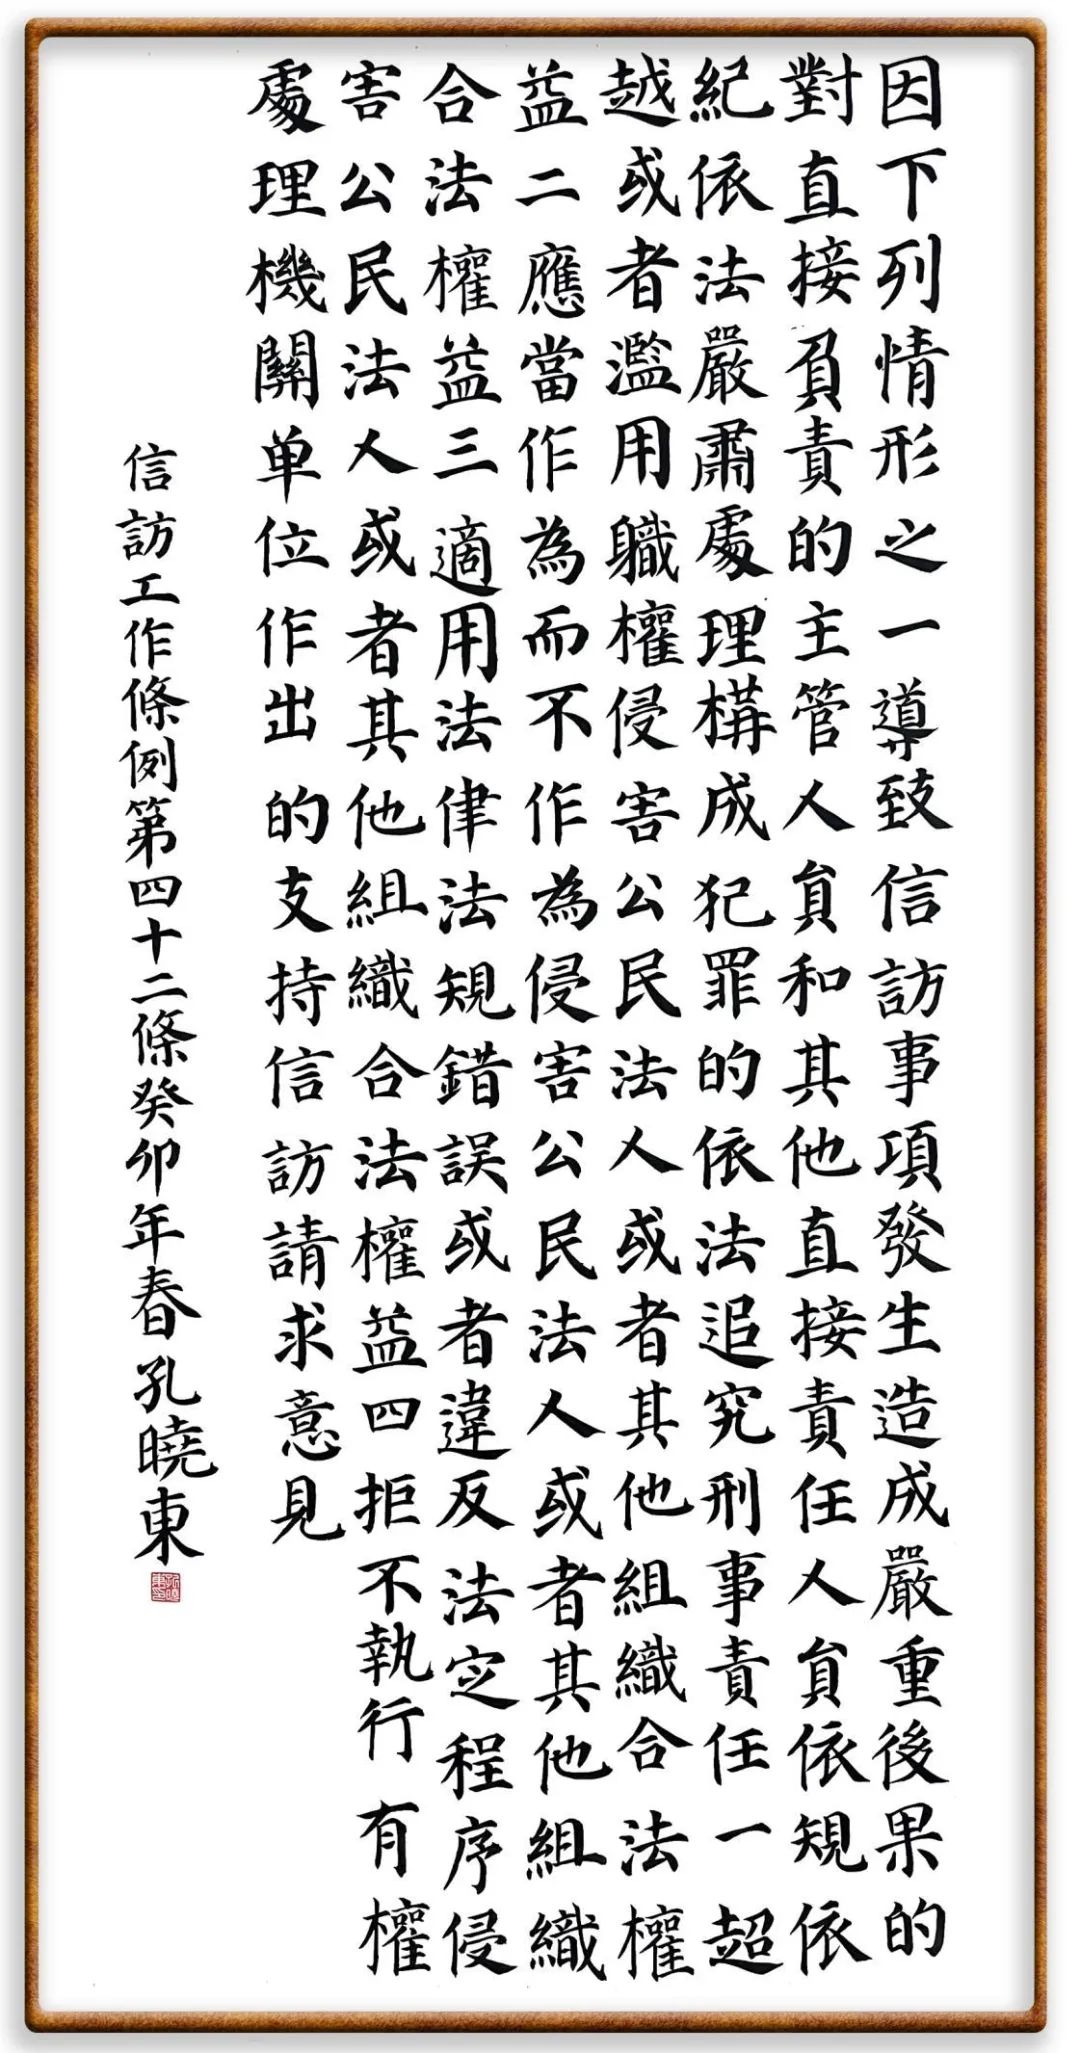 因下列情形之一導致信訪事項發生造成嚴重後果的
對直接負責的主管人員和其他直接責任人員依規依
紀依法嚴肅處理構成犯罪的依法追究刑事責任一超
越或者濫用職權侵害公民法人或者其他組織合法權
益二應當作為而不作為侵害公民法人或者其他組織
合法權益三適用法律法規錯誤或者違反法定程序侵
害公民法人或者其他組織合法權益四拒不執行有權
處理機關单位作出的支持信訪請求意見
信訪工作條例第四十二條癸卯年春孔曉東